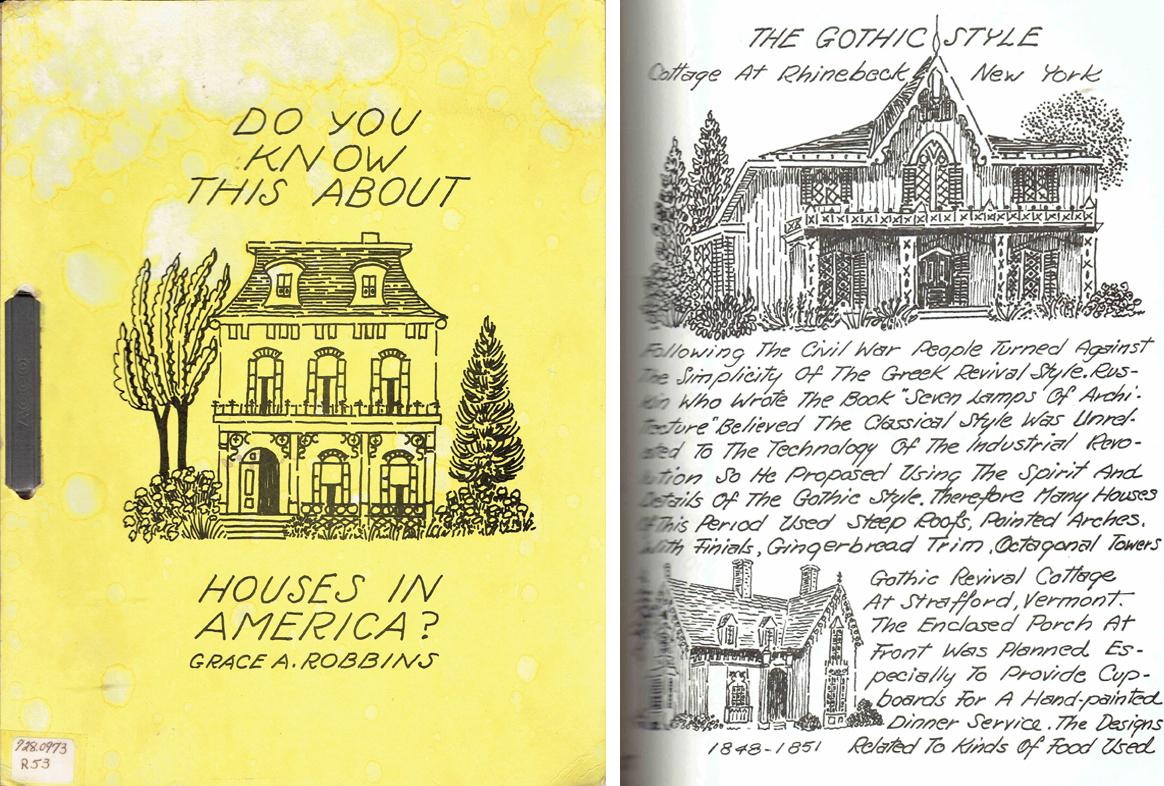 DO YOU
KNOW
THIS ABOUT
HOUSES IN
AMERICA?
GRACE A. ROBBINS
728.0973
R53
ACCO
THE GOTHIC STYLE
Cottage At Rhinebeck, New York
Following The Civil War People Turned Against
The Simplicity Of The Greek Revival Style. Rus-
kin Who Wrote The Book "Seven Lamps Of Archi-
tecture" Believed The Classical Style Was Unrel-
ated To The Technology Of The Industrial Revo-
lution So He Proposed Using The Spirit And
Details Of The Gothic Style. Therefore Many Houses
Of This Period Used Steep Roofs, Pointed Arches,
With Finials, Gingerbread Trim, Octagonal Towers
Gothic Revival Cottage
At Strafford, Vermont.
The Enclosed Porch At
Front Was Planned Es-
pecially To Provide Cup-
boards For A Hand-painted
Dinner Service. The Designs
1848-1851 Related To Kinds Of Food Used